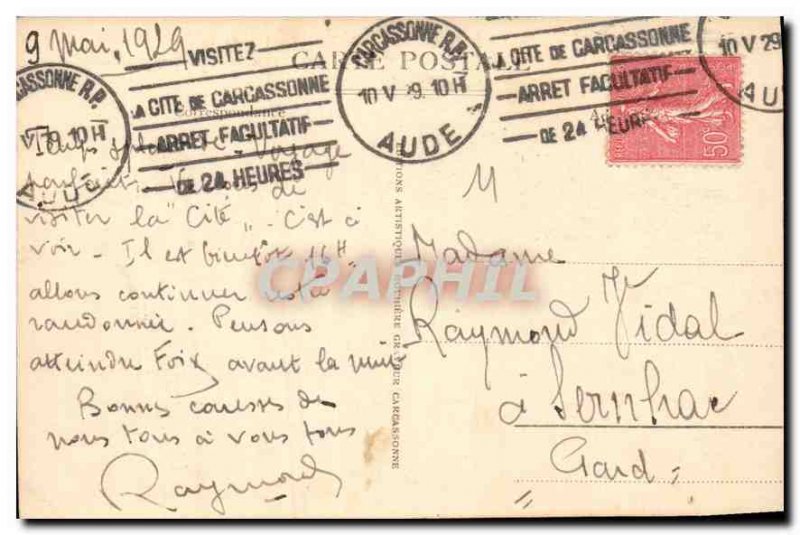 9 Mai, 1929
CARTE POSTALE
Correspondance
VISITEZ
LA CITE DE CARCASSONNE
ARRET FACULTATIF
DE 24 HEURES
CARCASSONNE R.P.
10 V 29. 10 H
AUDE
LA CITE DE CARCASSONNE
ARRET FACULTATIF
DE 24 HEURES
10 V 29
AUDE
CARCASSONNE R.P.
V 29. 10 H
AUDE
50c
Temps Voyage
parfait. Venons de
visiter la "Cité" - C'est à
voir - Il est bientôt 16H
allons continuer notre
randonnée. Pensons
atteindre Foix avant la nuit
Bonnes caresses de
nous tous à vous tous
Raymond
M
Madame
Raymond Vidal
à Sernhac
Gard
GRAVEUR CARCASSONNE
CPAPHIL